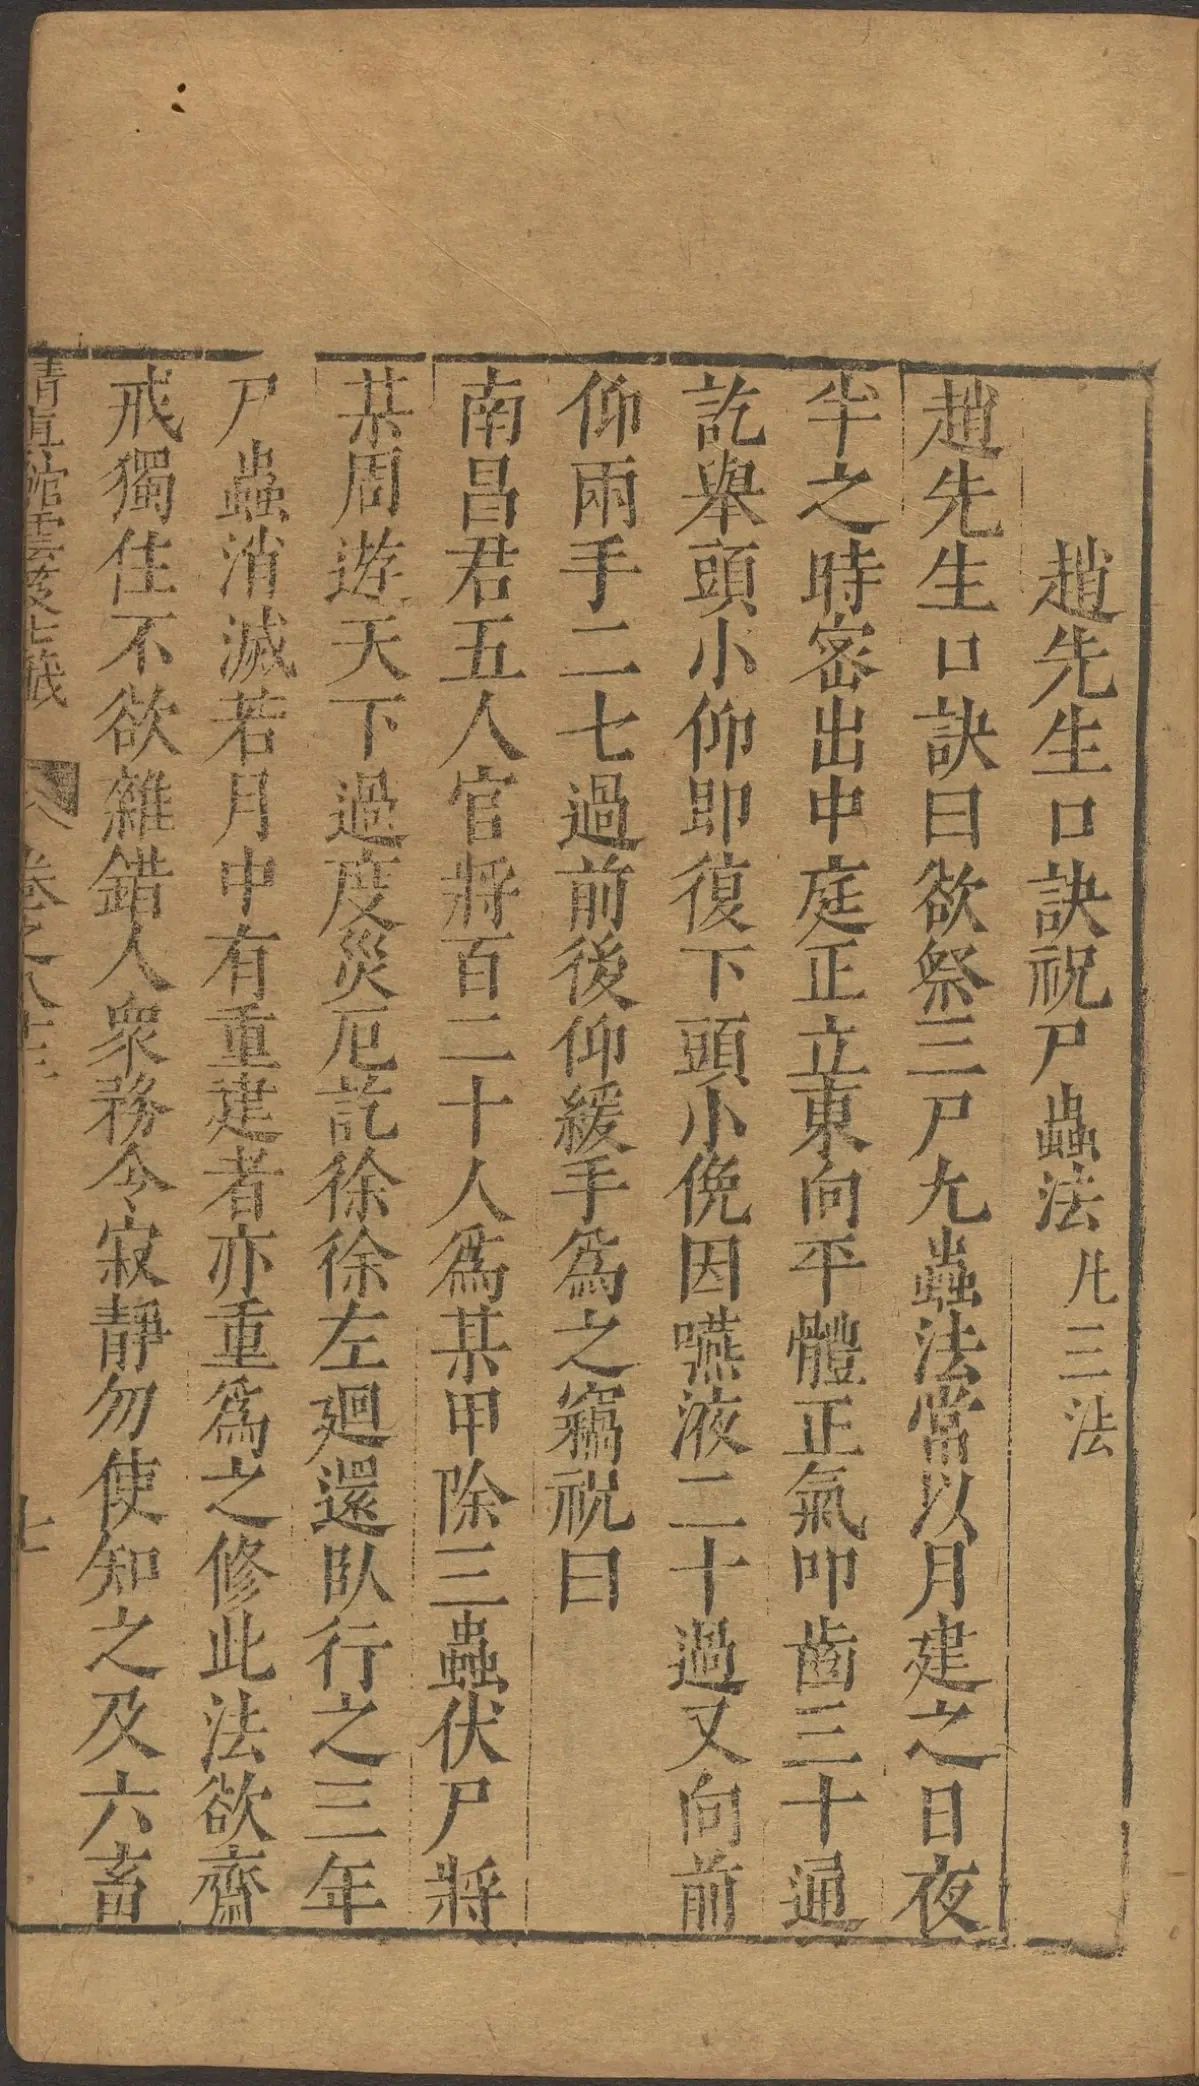 趙先生口訣祝尸蟲法凡三法
趙先生口訣曰欲祭三尸九蟲法常以月建之日夜
半之時密出中庭正立東向平體正氣叩齒三十通
訖舉頭小仰即復下頭小俛因嚥液二十過又向前
仰兩手二七過前後仰緩手爲之竊祝曰
南昌君五人官將百二十人爲某甲除三蟲伏尸將
某周遊天下過度災厄訖徐徐左迴還臥行之三年
尸蟲消滅若月中有重建者亦重爲之修此法欲齋
戒獨住不欲雜錯人衆務令寂靜勿使知之及六畜
清真館雲笈七籤 卷之八十三 七